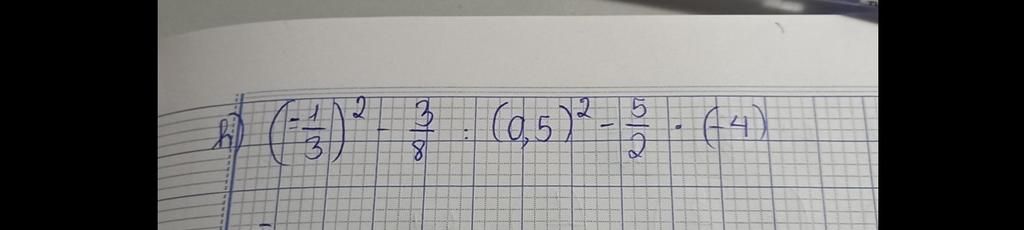 h) (-1/3)² - 3/8 : (0,5)² - 5/2 · (-4)